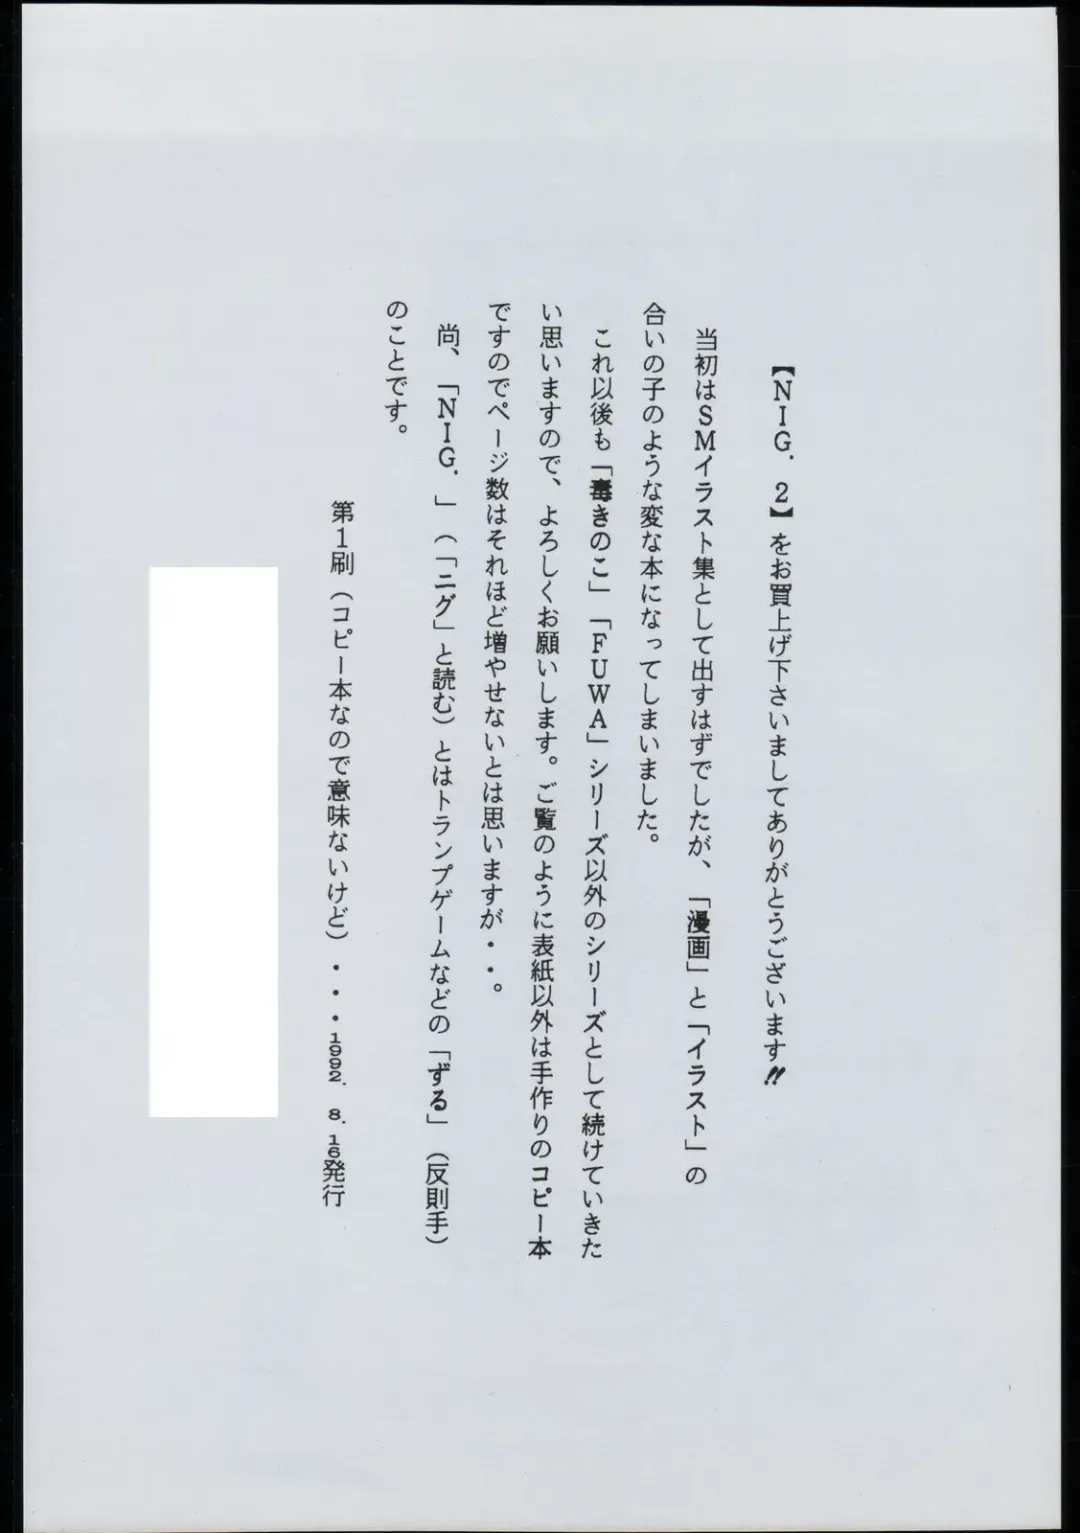 【NIG．2】をお買上げ下さいましてありがとうございます!!
当初はSMイラスト集として出すはずでしたが、「漫画」と「イラスト」の
合いの子のような変な本になってしまいました。
これ以後も「毒きのこ」「FUWA」シリーズ以外のシリーズとして続けていきた
い思いますので、よろしくお願いします。ご覧のように表紙以外は手作りのコピー本
ですのでページ数はそれほど増やせないとは思いますが・・。
尚、「NIG．」（「ニグ」と読む）とはトランプゲームなどの「ずる」（反則手）
のことです。
第1刷（コピー本なので意味ないけど）・・・1992．8．16発行